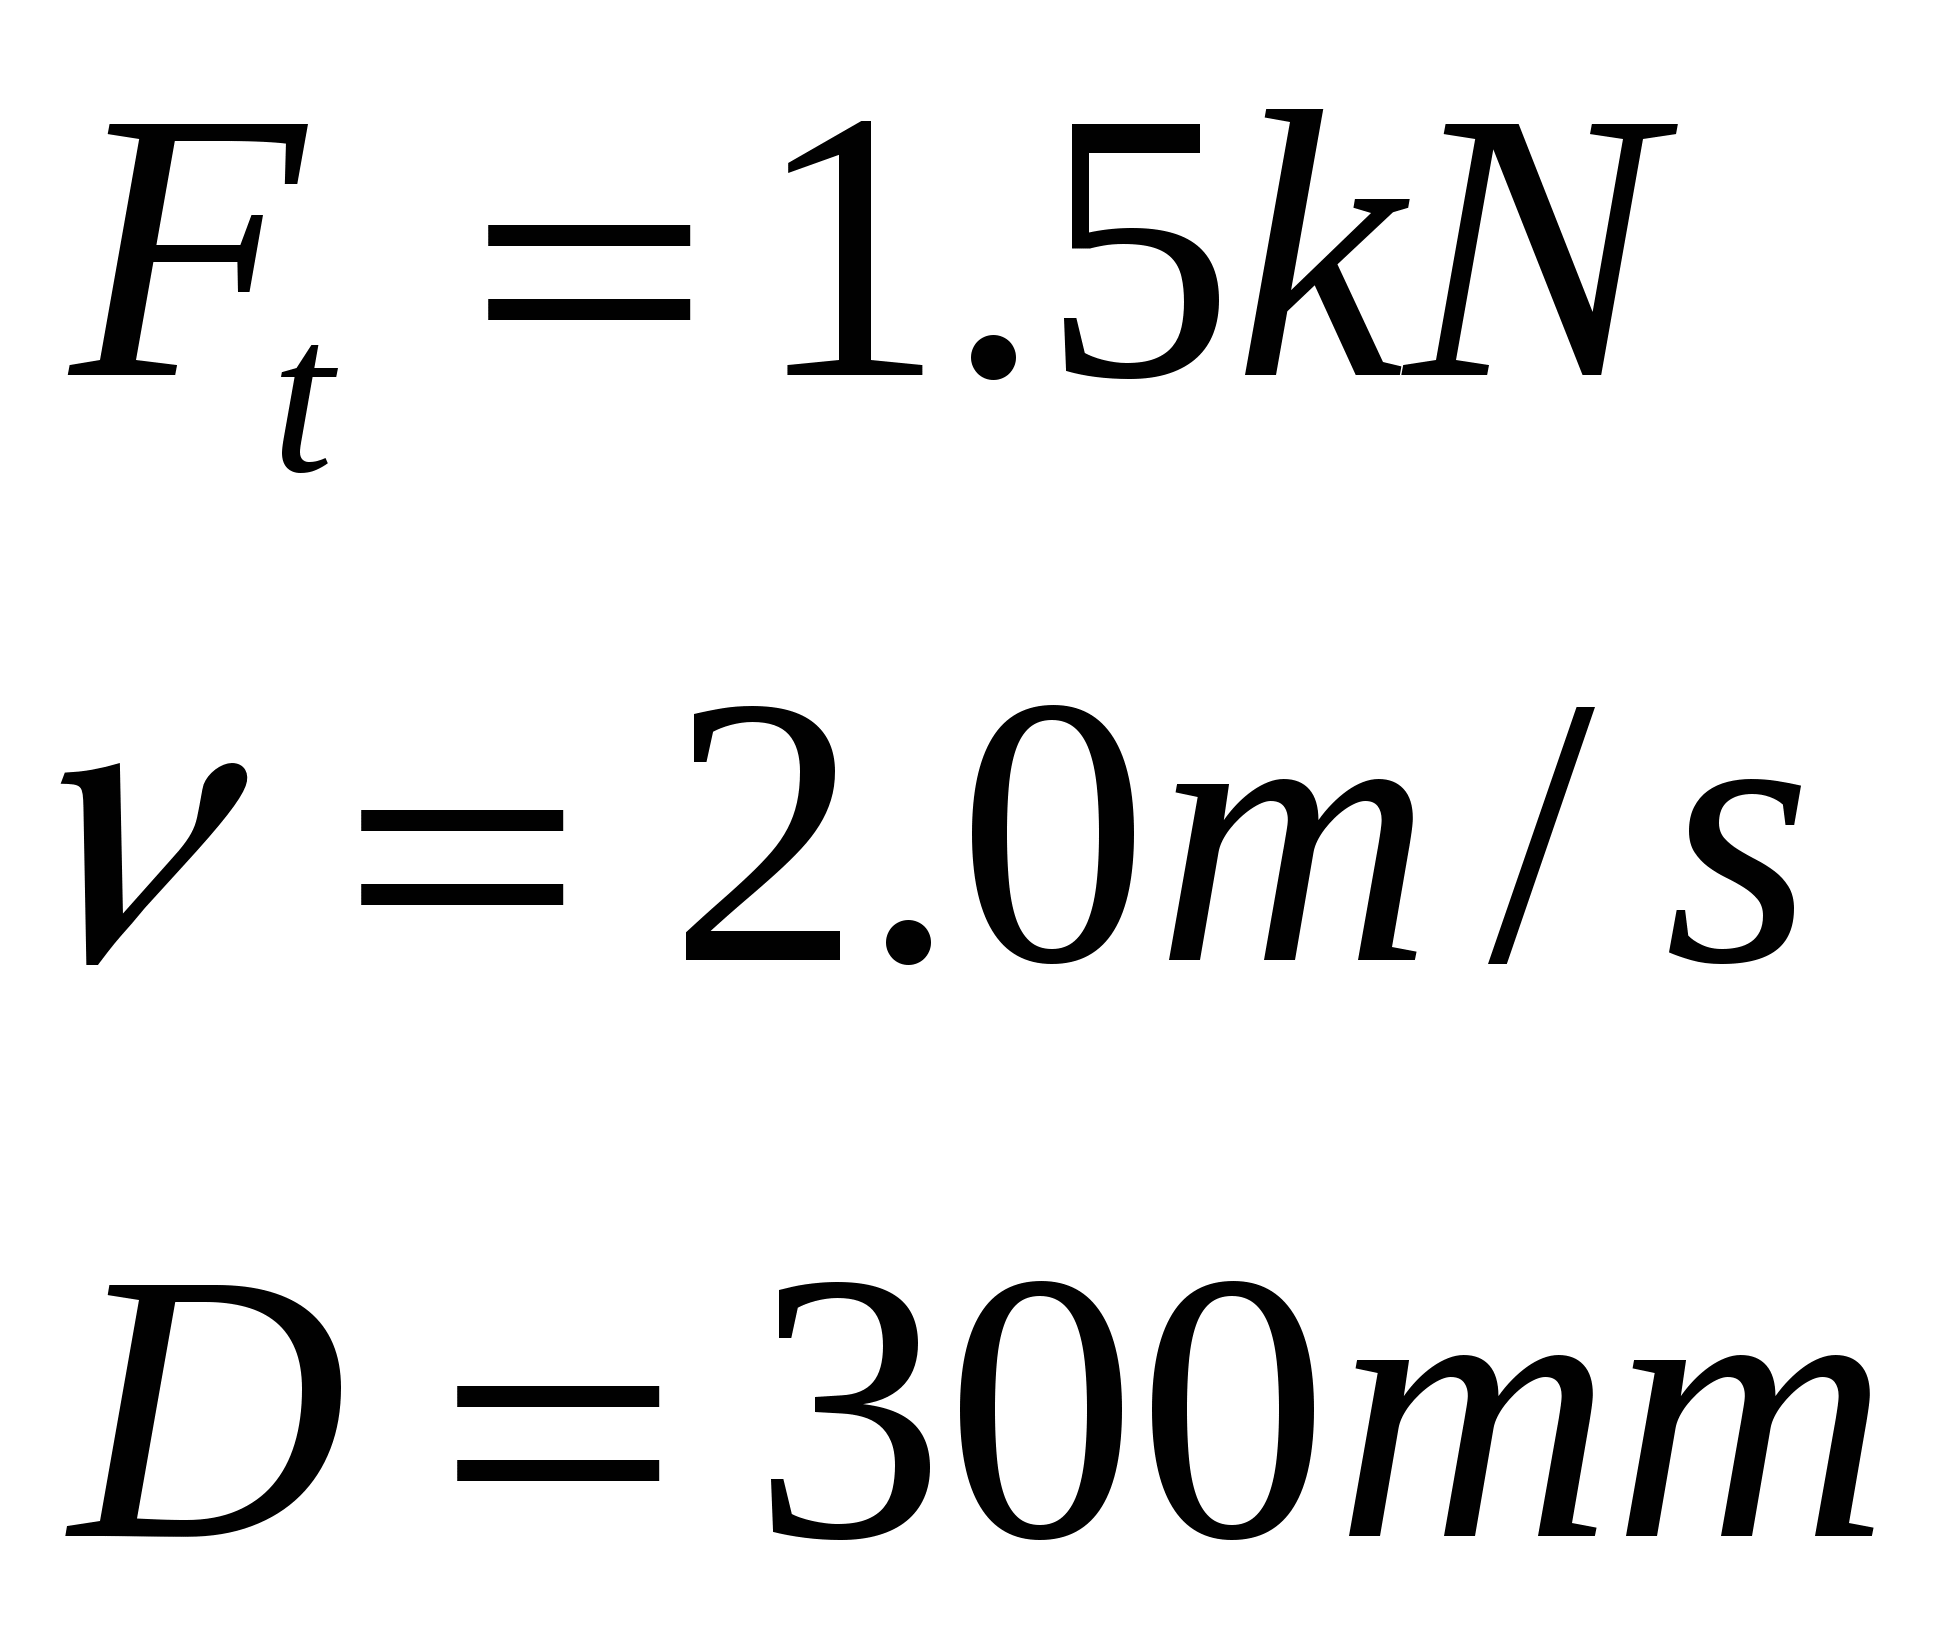 F_t = 1.5kN
v = 2.0m / s
D = 300mm